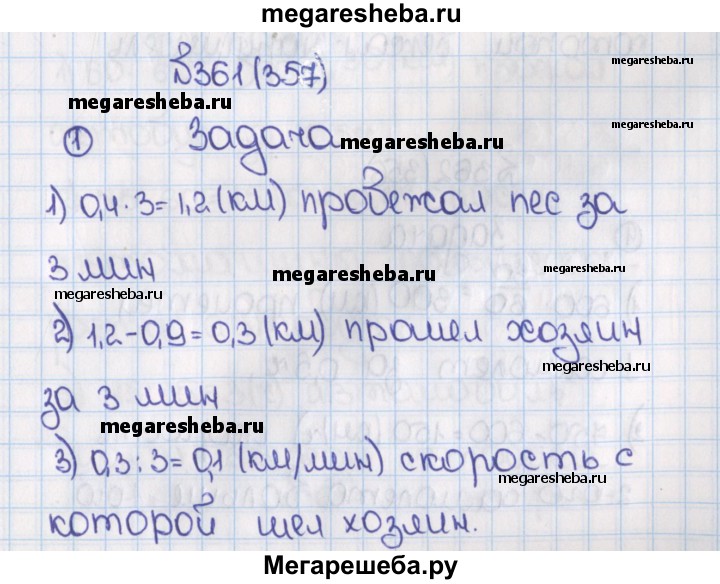 megaresheba.ru
№361(357)
megaresheba.ru
megaresheba.ru
① Задача megaresheba.ru
megaresheba.ru
1) 0,4 · 3 = 1,2 (км) пробежал пес за
3 мин megaresheba.ru
megaresheba.ru
megaresheba.ru
2) 1,2 - 0,9 = 0,3 (км) прошел хозяин
megaresheba.ru
за 3 мин
megaresheba.ru
3) 0,3 : 3 = 0,1 (км/мин) скорость с
megaresheba.ru
которой шел хозяин.
Мегарешеба.ру